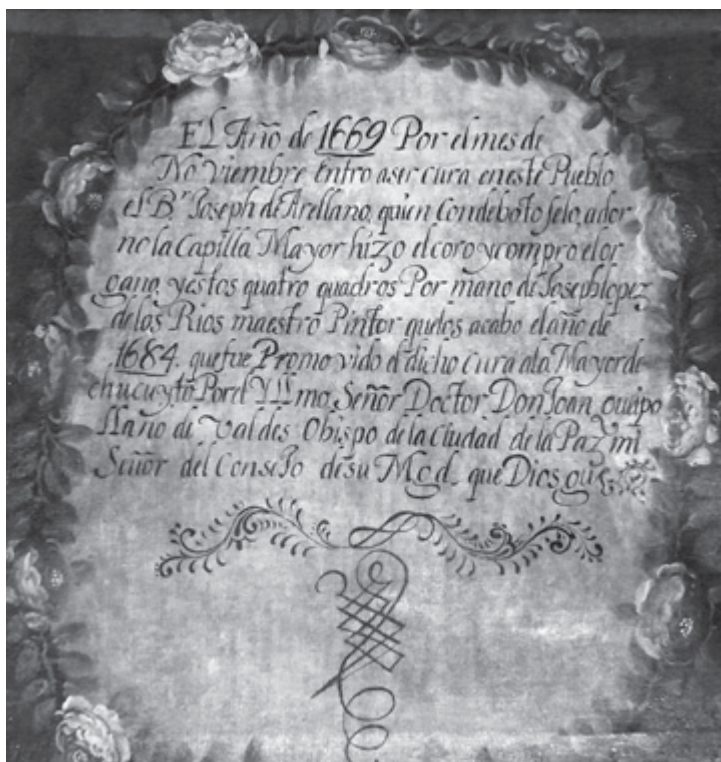 EL Año de 1669 Por el mes de
No viembre Entro aser cura eneste Pueblo
el B.r Joseph de Arellano, quien Condeboto selo, ador
no la Capilla Mayor hizo el coro y compro el or
gano, yestos quatro quadros Por mano de Joseph lopez
de los Rios maestro Pintor que los acabo el año de
1684. que fue Promo vido el dicho cura ala Mayor de
chucuyto Por el Yllmo, Señor Doctor Don Joan,
llano de Valdes Obispo de la Ciudad de la Paz mi
Señor del Consejo de su Mgd_ que Dios gu